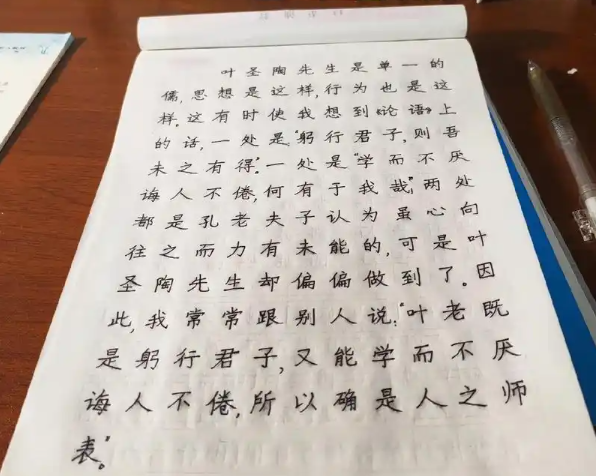 叶圣陶先生是单一的
儒,思想是这样,行为也是这
样。这有时使我想到《论语》上
的话,一处是:“躬行君子,则吾
未之有得。”一处是“学而不厌
诲人不倦,何有于我哉”,两处
都是孔老夫子认为虽心向
往之而力有未能的,可是叶
圣陶先生却偏偏做到了。因
此,我常常跟别人说:“叶老既
是躬行君子,又能学而不厌
诲人不倦,所以确是人之师
表”。